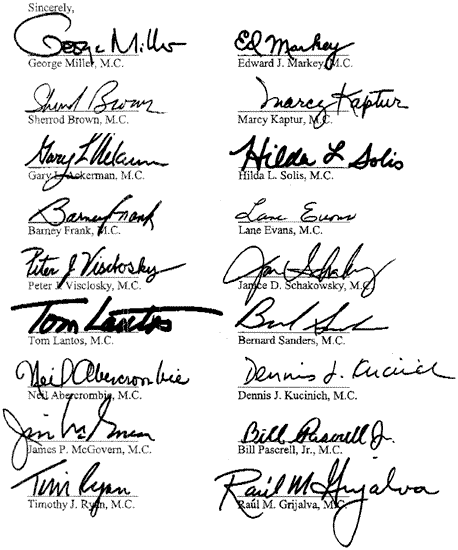 Sincerely,
George Miller
George Miller, M.C.
Ed Markey
Edward J. Markey, M.C.
Sherrod Brown
Sherrod Brown, M.C.
Marcy Kaptur
Marcy Kaptur, M.C.
Gary L Ackerman
Gary L. Ackerman, M.C.
Hilda L Solis
Hilda L. Solis, M.C.
Barney Frank
Barney Frank, M.C.
Lane Evans
Lane Evans, M.C.
Peter J Visclosky
Peter J. Visclosky, M.C.
Jan Schakowsky
Janice D. Schakowsky, M.C.
Tom Lantos
Tom Lantos, M.C.
Bernard Sanders, M.C.
Neil Abercrombie
Neil Abercrombie, M.C.
Dennis J. Kucinich
Dennis J. Kucinich, M.C.
Jim McGovern
James P. McGovern, M.C.
Bill Pascrell Jr.
Bill Pascrell, Jr., M.C.
Tim Ryan
Timothy J. Ryan, M.C.
Raúl M Grijalva
Raúl M. Grijalva, M.C.